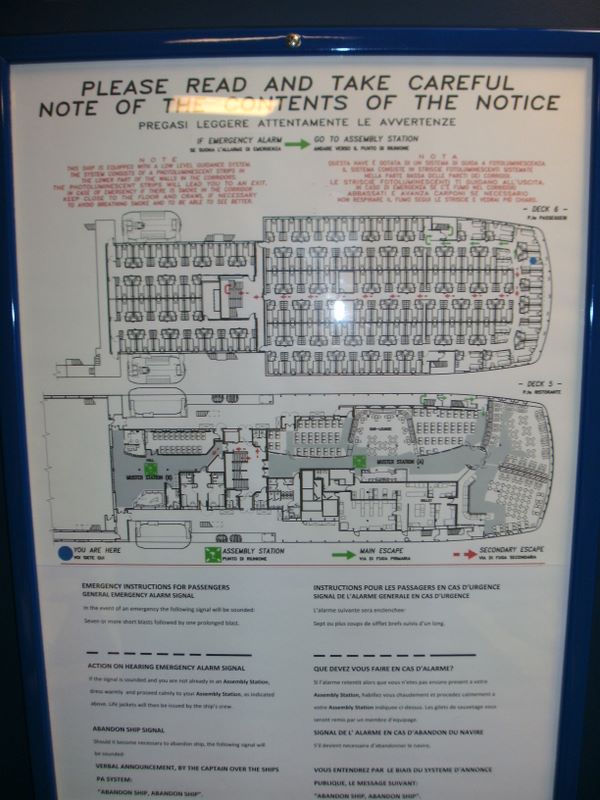 PLEASE READ AND TAKE CAREFUL
NOTE OF THE CONTENTS OF THE NOTICE
PREGASI LEGGERE ATTENTAMENTE LE AVVERTENZE
IF EMERGENCY ALARM GO TO ASSEMBLY STATION
SE SUONA L'ALLARME DI EMERGENZA ANDARE VERSO IL PUNTO DI RIUNIONE
NOTE
THIS SHIP IS EQUIPPED WITH A LOW LEVEL GUIDANCE SYSTEM.
THE SYSTEM CONSISTS OF A PHOTOLUMINESCENT STRIPS IN
THE LOWER PART OF THE WALLS IN THE CORRIDORS.
THE PHOTOLUMINESCENT STRIPS WILL LEAD YOU TO AN EXIT,
IN CASE OF EMERGENCY IF THERE IS SMOKE IN THE CORRIDOR
KEEP CLOSE TO THE FLOOR AND CRAWL IF NECESSARY
TO AVOID BREATHING SMOKE AND TO BE ABLE TO SEE BETTER.
NOTA
QUESTA NAVE È DOTATA DI UN SISTEMA DI GUIDA A FOTOLUMINESCENZA
IL SISTEMA CONSISTE IN STRISCIE FOTOLUMINESCENTI SISTEMATE
NELLA PARTE BASSA DELLE PARETI DEI CORRIDOI.
LE STRISCIE FOTOLUMINESCENTI TI GUIDANO ALL'USCITA.
IN CASO DI EMERGENZA SE C'È FUMO NEL CORRIDOIO
ABBASSATI E AVANZA CARPONI SE NECESSARIO
NON RESPIRARE IL FUMO SEGUI LE STRISCIE E VEDRAI PIÙ CHIARO.
- DECK 6 -
P.te PASSEGGERI
- DECK 5 -
P.te RISTORANTE
HALL
MUSTER STATION (B)
BAR-LOUNGE
MUSTER STATION (A)
YOU ARE HERE
VOI SIETE QUI
ASSEMBLY STATION
PUNTO DI RIUNIONE
MAIN ESCAPE
VIA DI FUGA PRIMARIA
SECONDARY ESCAPE
VIA DI FUGA SECONDARIA
EMERGENCY INSTRUCTIONS FOR PASSENGERS
GENERAL EMERGENCY ALARM SIGNAL
In the event of an emergency the following signal will be sounded:
Seven or more short blasts followed by one prolonged blast.
ACTION ON HEARING EMERGENCY ALARM SIGNAL
If the signal is sounded and you are not already in an Assembly Station,
dress warmly and proceed calmly to your Assembly Station, as indicated
above. Life jackets will then be issued by the ship's crew.
ABANDON SHIP SIGNAL
Should it become necessary to abandon ship, the following signal will
be sounded:
VERBAL ANNOUNCEMENT, BY THE CAPTAIN OVER THE SHIPS
PA SYSTEM:
"ABANDON SHIP, ABANDON SHIP".
INSTRUCTIONS POUR LES PASSAGERS EN CAS D'URGENCE
SIGNAL DE L'ALARME GENERALE EN CAS D'URGENCE
L'alarme suivante sera enclenchee:
Sept ou plus coups de sifflet brefs suivis d'un long.
QUE DEVEZ VOUS FAIRE EN CAS D'ALARME?
Si l'alarme retentit alors que vous n'etes pas encore present a votre
Assembly Station, habillez vous chaudement et procedez calmement a
votre Assembly Station indiquee ci-dessus. Les gilets de sauvetage vous
seront remis par un membre d'equipage.
SIGNAL DE L' ALARME EN CAS D'ABANDON DU NAVIRE
S'il devient necessaire d'abandonner le navire,
VOUS ENTENDREZ PAR LE BIAIS DU SYSTEME D'ANNONCE
PUBLIQUE, LE MESSAGE SUIVANT:
"ABANDON SHIP, ABANDON SHIP".